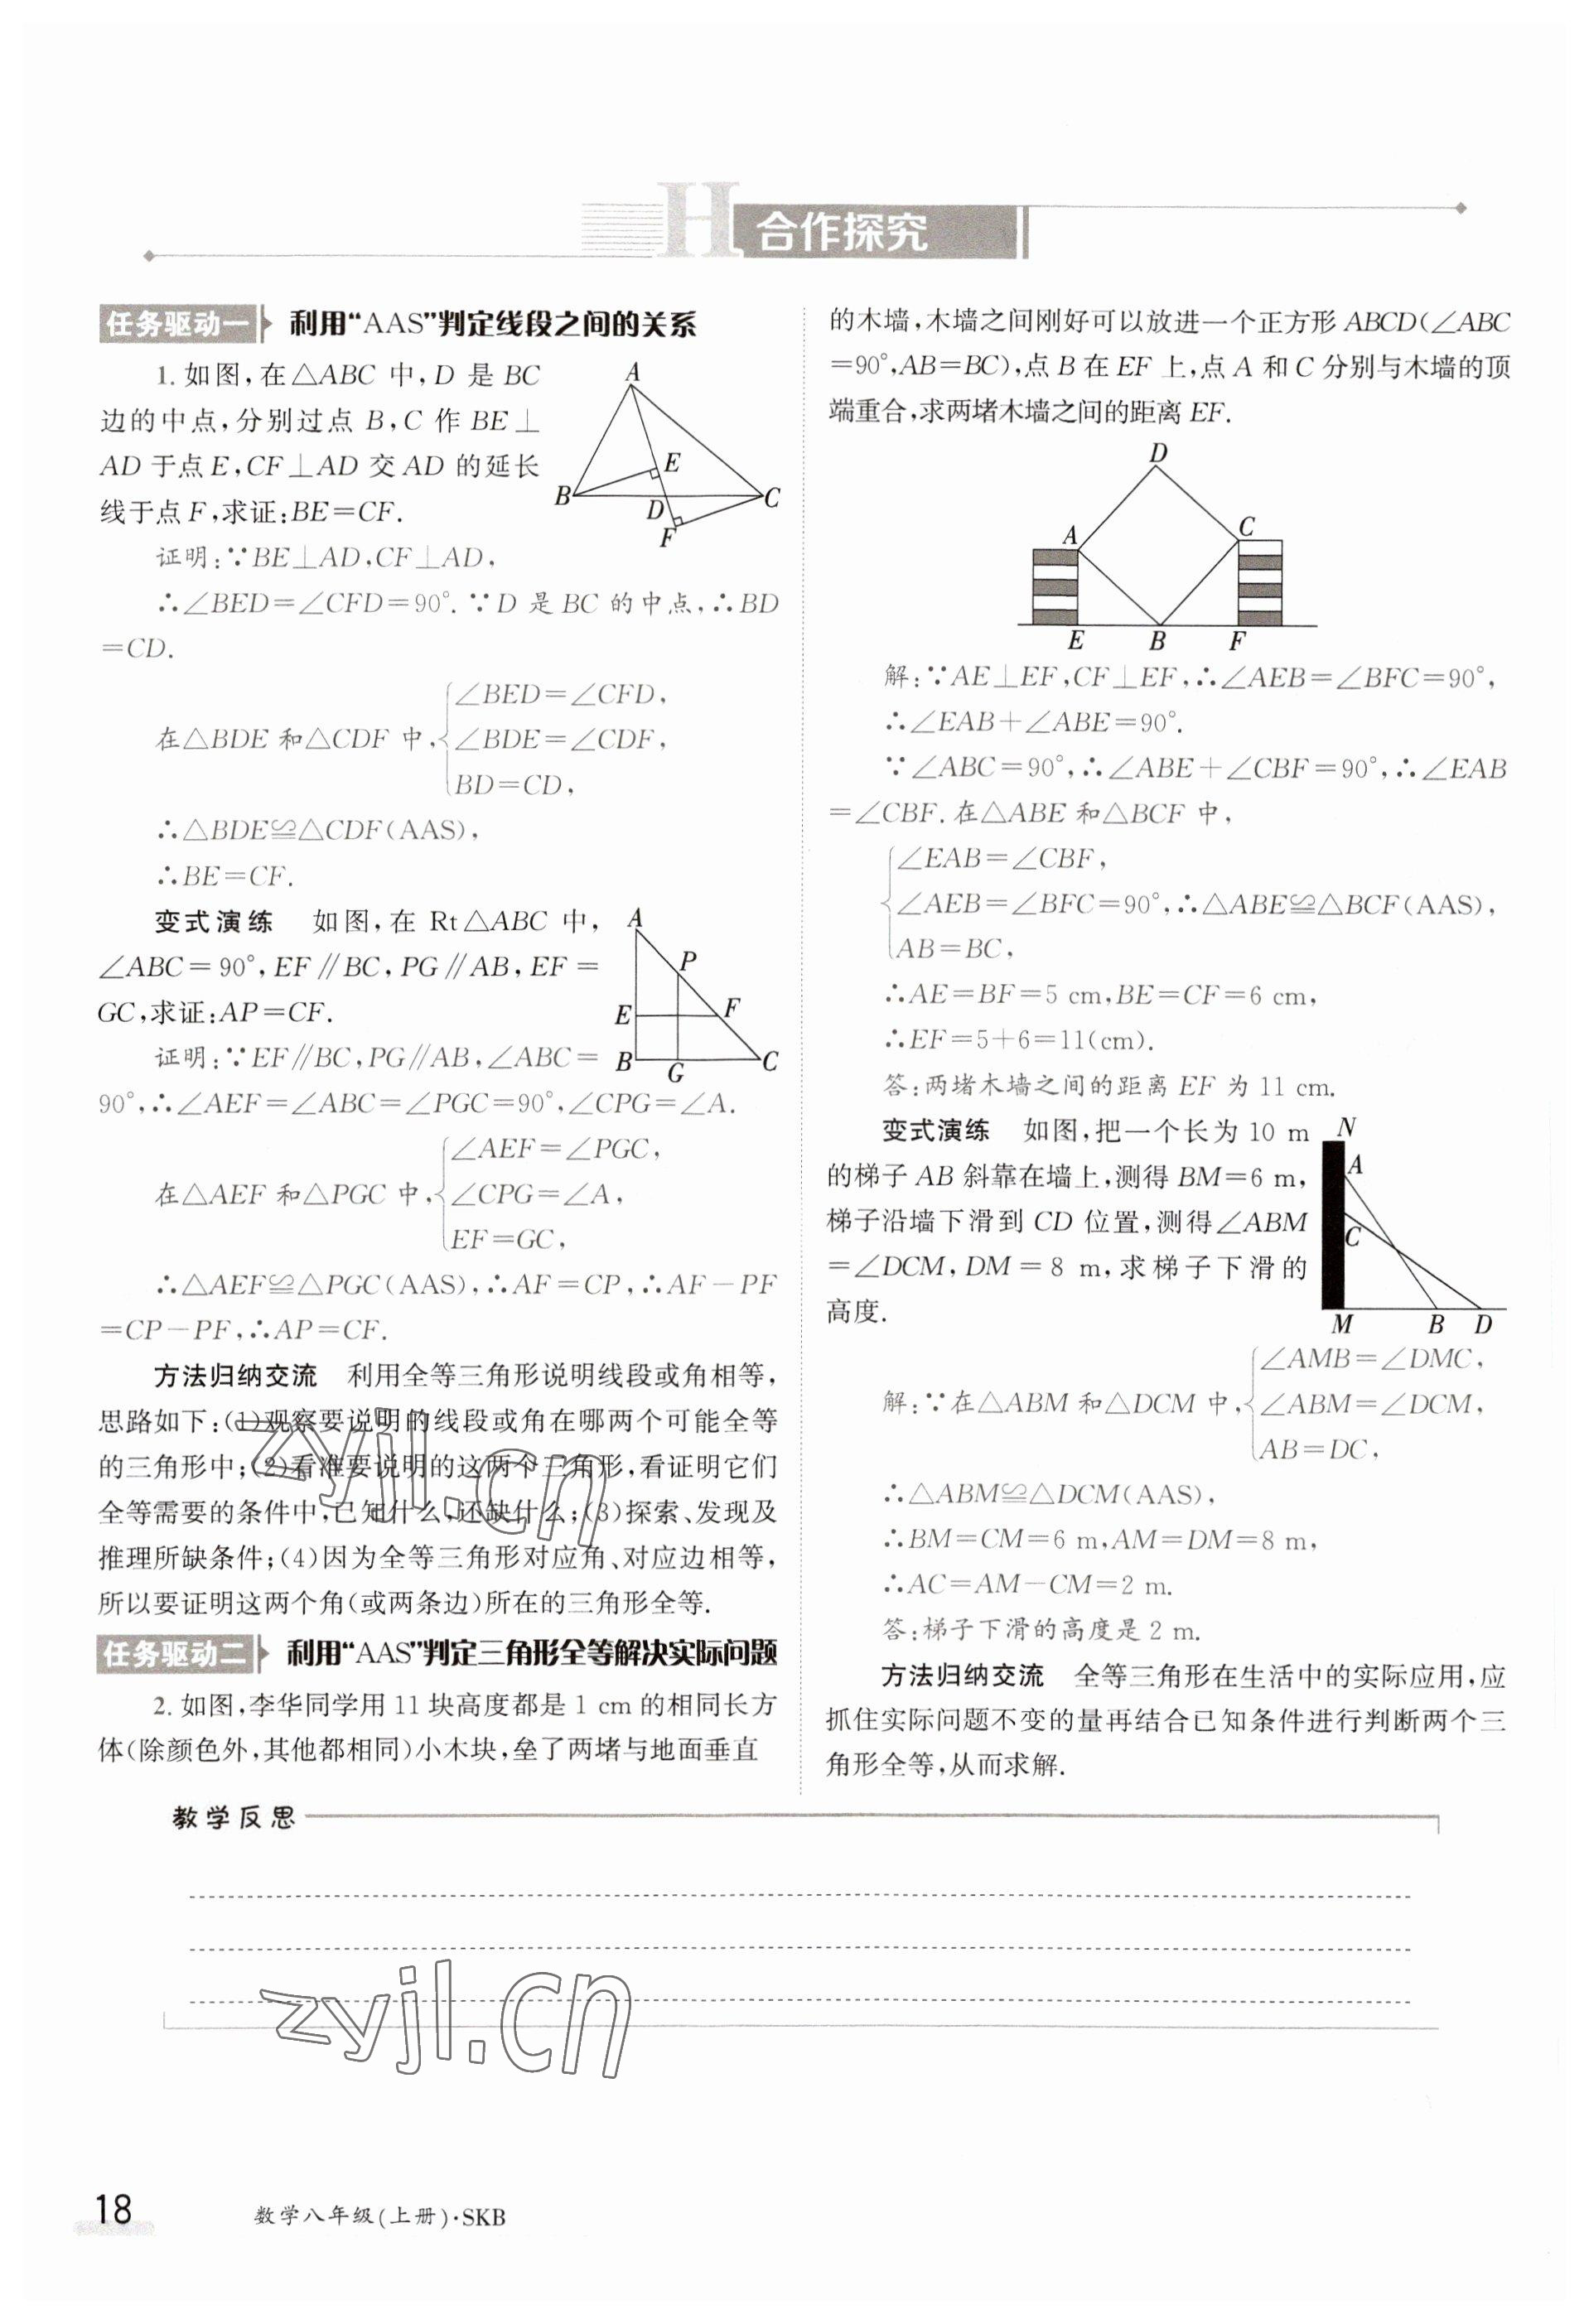 H 合作探究
任务驱动一 利用“AAS”判定线段之间的关系
1. 如图,在△ABC 中,D 是 BC
边的中点,分别过点 B,C 作 BE⊥
AD 于点 E,CF⊥AD 交 AD 的延长
线于点 F,求证:BE=CF.
A
E
B
D
C
F
证明:∵BE⊥AD,CF⊥AD,
∴∠BED=∠CFD=90°.∵D 是 BC 的中点,∴BD
=CD.
∠BED=∠CFD,
在△BDE 和△CDF 中,{∠BDE=∠CDF,
BD=CD,
∴△BDE≌△CDF(AAS),
∴BE=CF.
变式演练 如图,在 Rt△ABC 中,
∠ABC=90°,EF∥BC,PG∥AB,EF=
GC,求证:AP=CF.
A
P
E
F
B
G
C
证明:∵EF∥BC,PG∥AB,∠ABC=
90°,∴∠AEF=∠ABC=∠PGC=90°,∠CPG=∠A.
∠AEF=∠PGC,
在△AEF 和△PGC 中,{∠CPG=∠A,
EF=GC,
∴△AEF≌△PGC(AAS),∴AF=CP,∴AF-PF
=CP-PF,∴AP=CF.
方法归纳交流 利用全等三角形说明线段或角相等,
思路如下:(1)观察要说明的线段或角在哪两个可能全等
的三角形中;(2)看准要说明的这两个三角形,看证明它们
全等需要的条件中,已知什么,还缺什么;(3)探索、发现及
推理所缺条件;(4)因为全等三角形对应角、对应边相等,
所以要证明这两个角(或两条边)所在的三角形全等.
任务驱动二 利用“AAS”判定三角形全等解决实际问题
2. 如图,李华同学用 11 块高度都是 1 cm 的相同长方
体(除颜色外,其他都相同)小木块,垒了两堵与地面垂直
的木墙,木墙之间刚好可以放进一个正方形 ABCD(∠ABC
=90°,AB=BC),点 B 在 EF 上,点 A 和 C 分别与木墙的顶
端重合,求两堵木墙之间的距离 EF.
D
A
C
E
B
F
解:∵AE⊥EF,CF⊥EF,∴∠AEB=∠BFC=90°,
∴∠EAB+∠ABE=90°.
∵∠ABC=90°,∴∠ABE+∠CBF=90°,∴∠EAB
=∠CBF.在△ABE 和△BCF 中,
∠EAB=∠CBF,
{∠AEB=∠BFC=90°,∴△ABE≌△BCF(AAS),
AB=BC,
∴AE=BF=5 cm,BE=CF=6 cm,
∴EF=5+6=11(cm).
答:两堵木墙之间的距离 EF 为 11 cm.
变式演练 如图,把一个长为 10 m
的梯子 AB 斜靠在墙上,测得 BM=6 m,
梯子沿墙下滑到 CD 位置,测得∠ABM
=∠DCM,DM=8 m,求梯子下滑的
高度.
N
A
C
M
B
D
∠AMB=∠DMC,
解:∵在△ABM 和△DCM 中,{∠ABM=∠DCM,
AB=DC,
∴△ABM≌△DCM(AAS),
∴BM=CM=6 m,AM=DM=8 m,
∴AC=AM-CM=2 m.
答:梯子下滑的高度是 2 m.
方法归纳交流 全等三角形在生活中的实际应用,应
抓住实际问题不变的量再结合已知条件进行判断两个三
角形全等,从而求解.
教学反思
zyjl.cn
zyjl.cn
18
数学八年级(上册)·SKB